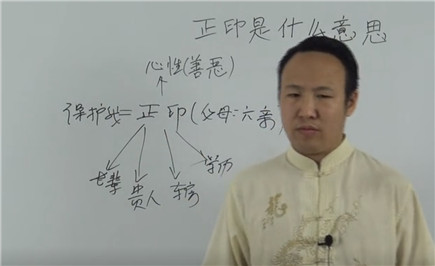 正印是什么意思
心性(善恶)
保护我=正印(父母:六亲)
长辈 贵人 车房 学历